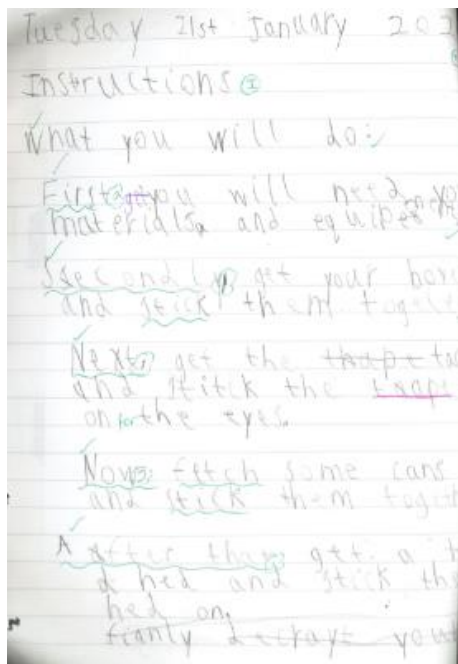 Tuesday 21st January 202
Instructions I
What you will do:
First, you will need
materials and
Secondly, get your
and stick them
Next, get the thape
and stitck the tnape
on for the eyes.
Now: fetch some cans
and stick them
A After that, get a
hed and stick
hed on.
fianly